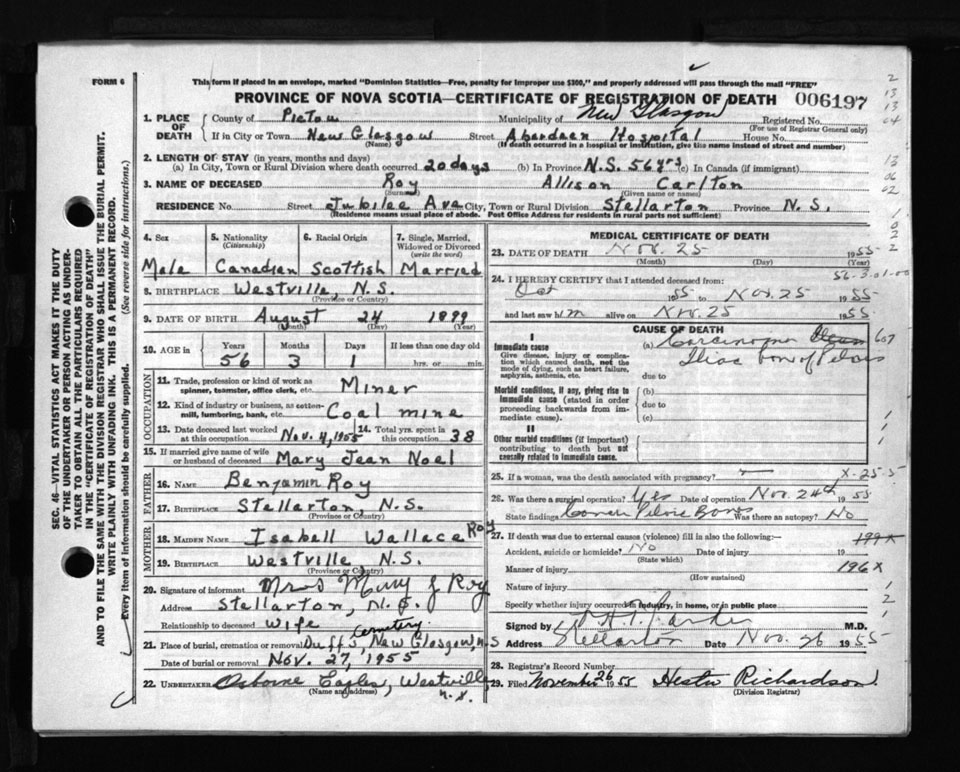 FORM 6
This form if placed in an envelope, marked "Dominion Statistics—Free, penalty for improper use $300," and properly addressed will pass through the mail "FREE"
PROVINCE OF NOVA SCOTIA—CERTIFICATE OF REGISTRATION OF DEATH 006197
SEC. 46—VITAL STATISTICS ACT MAKES IT THE DUTY
OF THE UNDERTAKER OR PERSON ACTING AS UNDER-
TAKER TO OBTAIN ALL THE PARTICULARS REQUIRED
IN THE "CERTIFICATE OF REGISTRATION OF DEATH"
AND TO FILE THE SAME WITH THE DIVISION REGISTRAR WHO SHALL ISSUE THE BURIAL PERMIT.
WRITE PLAINLY WITH UNFADING INK. THIS IS A PERMANENT RECORD.
Every item of information should be carefully supplied. (See reverse side for instructions.)
1. PLACE OF DEATH
County of Pictou Municipality of New Glasgow Registered No.
(For use of Registrar General only)
If in City or Town New Glasgow Street Aberdeen Hospital House No.
(Name) (If death occurred in a hospital or institution, give the name instead of street and number)
2. LENGTH OF STAY (in years, months and days)
(a) In City, Town or Rural Division where death occurred 20 days (b) In Province N.S. 56 yrs (c) In Canada (if immigrant)
3. NAME OF DECEASED Roy Allison Carlton
(Surname) (Given name or names)
RESIDENCE No. Street Jubilee Ave City, Town or Rural Division Stellarton Province N.S.
(Residence means usual place of abode. Post Office Address for residents in rural parts not sufficient)
4. Sex 5. Nationality (Citizenship) 6. Racial Origin 7. Single, Married, Widowed or Divorced (write the word)
Male Canadian Scottish Married
8. BIRTHPLACE Westville, N.S.
(Province or Country)
9. DATE OF BIRTH August 24 1899
(Month) (Day) (Year)
10. AGE in Years Months Days If less than one day old
56 3 1 hrs. or min.
OCCUPATION
11. Trade, profession or kind of work as spinner, teamster, office clerk, etc. Miner
12. Kind of industry or business, as cotton-mill, lumbering, bank, etc. Coal mine
13. Date deceased last worked at this occupation Nov. 4, 1955 14. Total yrs. spent in this occupation 38
15. If married give name of wife or husband of deceased Mary Jean Noel
FATHER
16. NAME Benjamin Roy
17. BIRTHPLACE Stellarton, N.S.
(Province or Country)
MOTHER
18. MAIDEN NAME Isabell Wallace Roy
19. BIRTHPLACE Westville, N.S.
(Province or Country)
20. Signature of informant Mrs Mary J Roy
Address Stellarton, N.S.
Relationship to deceased Wife
21. Place of burial, cremation or removal Duff's Cemetery, New Glasgow, N.S
Date of burial or removal Nov. 27, 1955
22. UNDERTAKER Osborne Eagles, Westville N.S.
(Name and address)
MEDICAL CERTIFICATE OF DEATH
23. DATE OF DEATH Nov. 25 1955
(Month) (Day) (Year)
56-3-01-00
24. I HEREBY CERTIFY that I attended deceased from:
Oct 1955 to Nov. 25 1955
and last saw him alive on Nov. 25 1955
CAUSE OF DEATH
I
Immediate cause
Give disease, injury or complication which caused death, not the mode of dying, such as heart failure, asphyxia, asthenia, etc.
(a) Carcinoma
Iliac bone of Pelvis
due to
Morbid conditions, if any, giving rise to immediate cause (stated in order proceeding backwards from immediate cause).
(b)
due to
(c)
II
Other morbid conditions (if important) contributing to death but not causally related to immediate cause.
25. If a woman, was the death associated with pregnancy?
26. Was there a surgical operation? Yes Date of operation Nov. 24th 1955
State findings Cancer Pelvic Bones Was there an autopsy? No
27. If death was due to external causes (violence) fill in also the following:—
Accident, suicide or homicide? No Date of injury 19
(State which)
Manner of injury 196X
(How sustained)
Nature of injury
Specify whether injury occurred in industry, in home, or in public place
Signed by M.D.
Address Stellarton Date Nov. 26 1955
28. Registrar's Record Number
29. Filed November 26 1955 Hester Richardson
(Division Registrar)